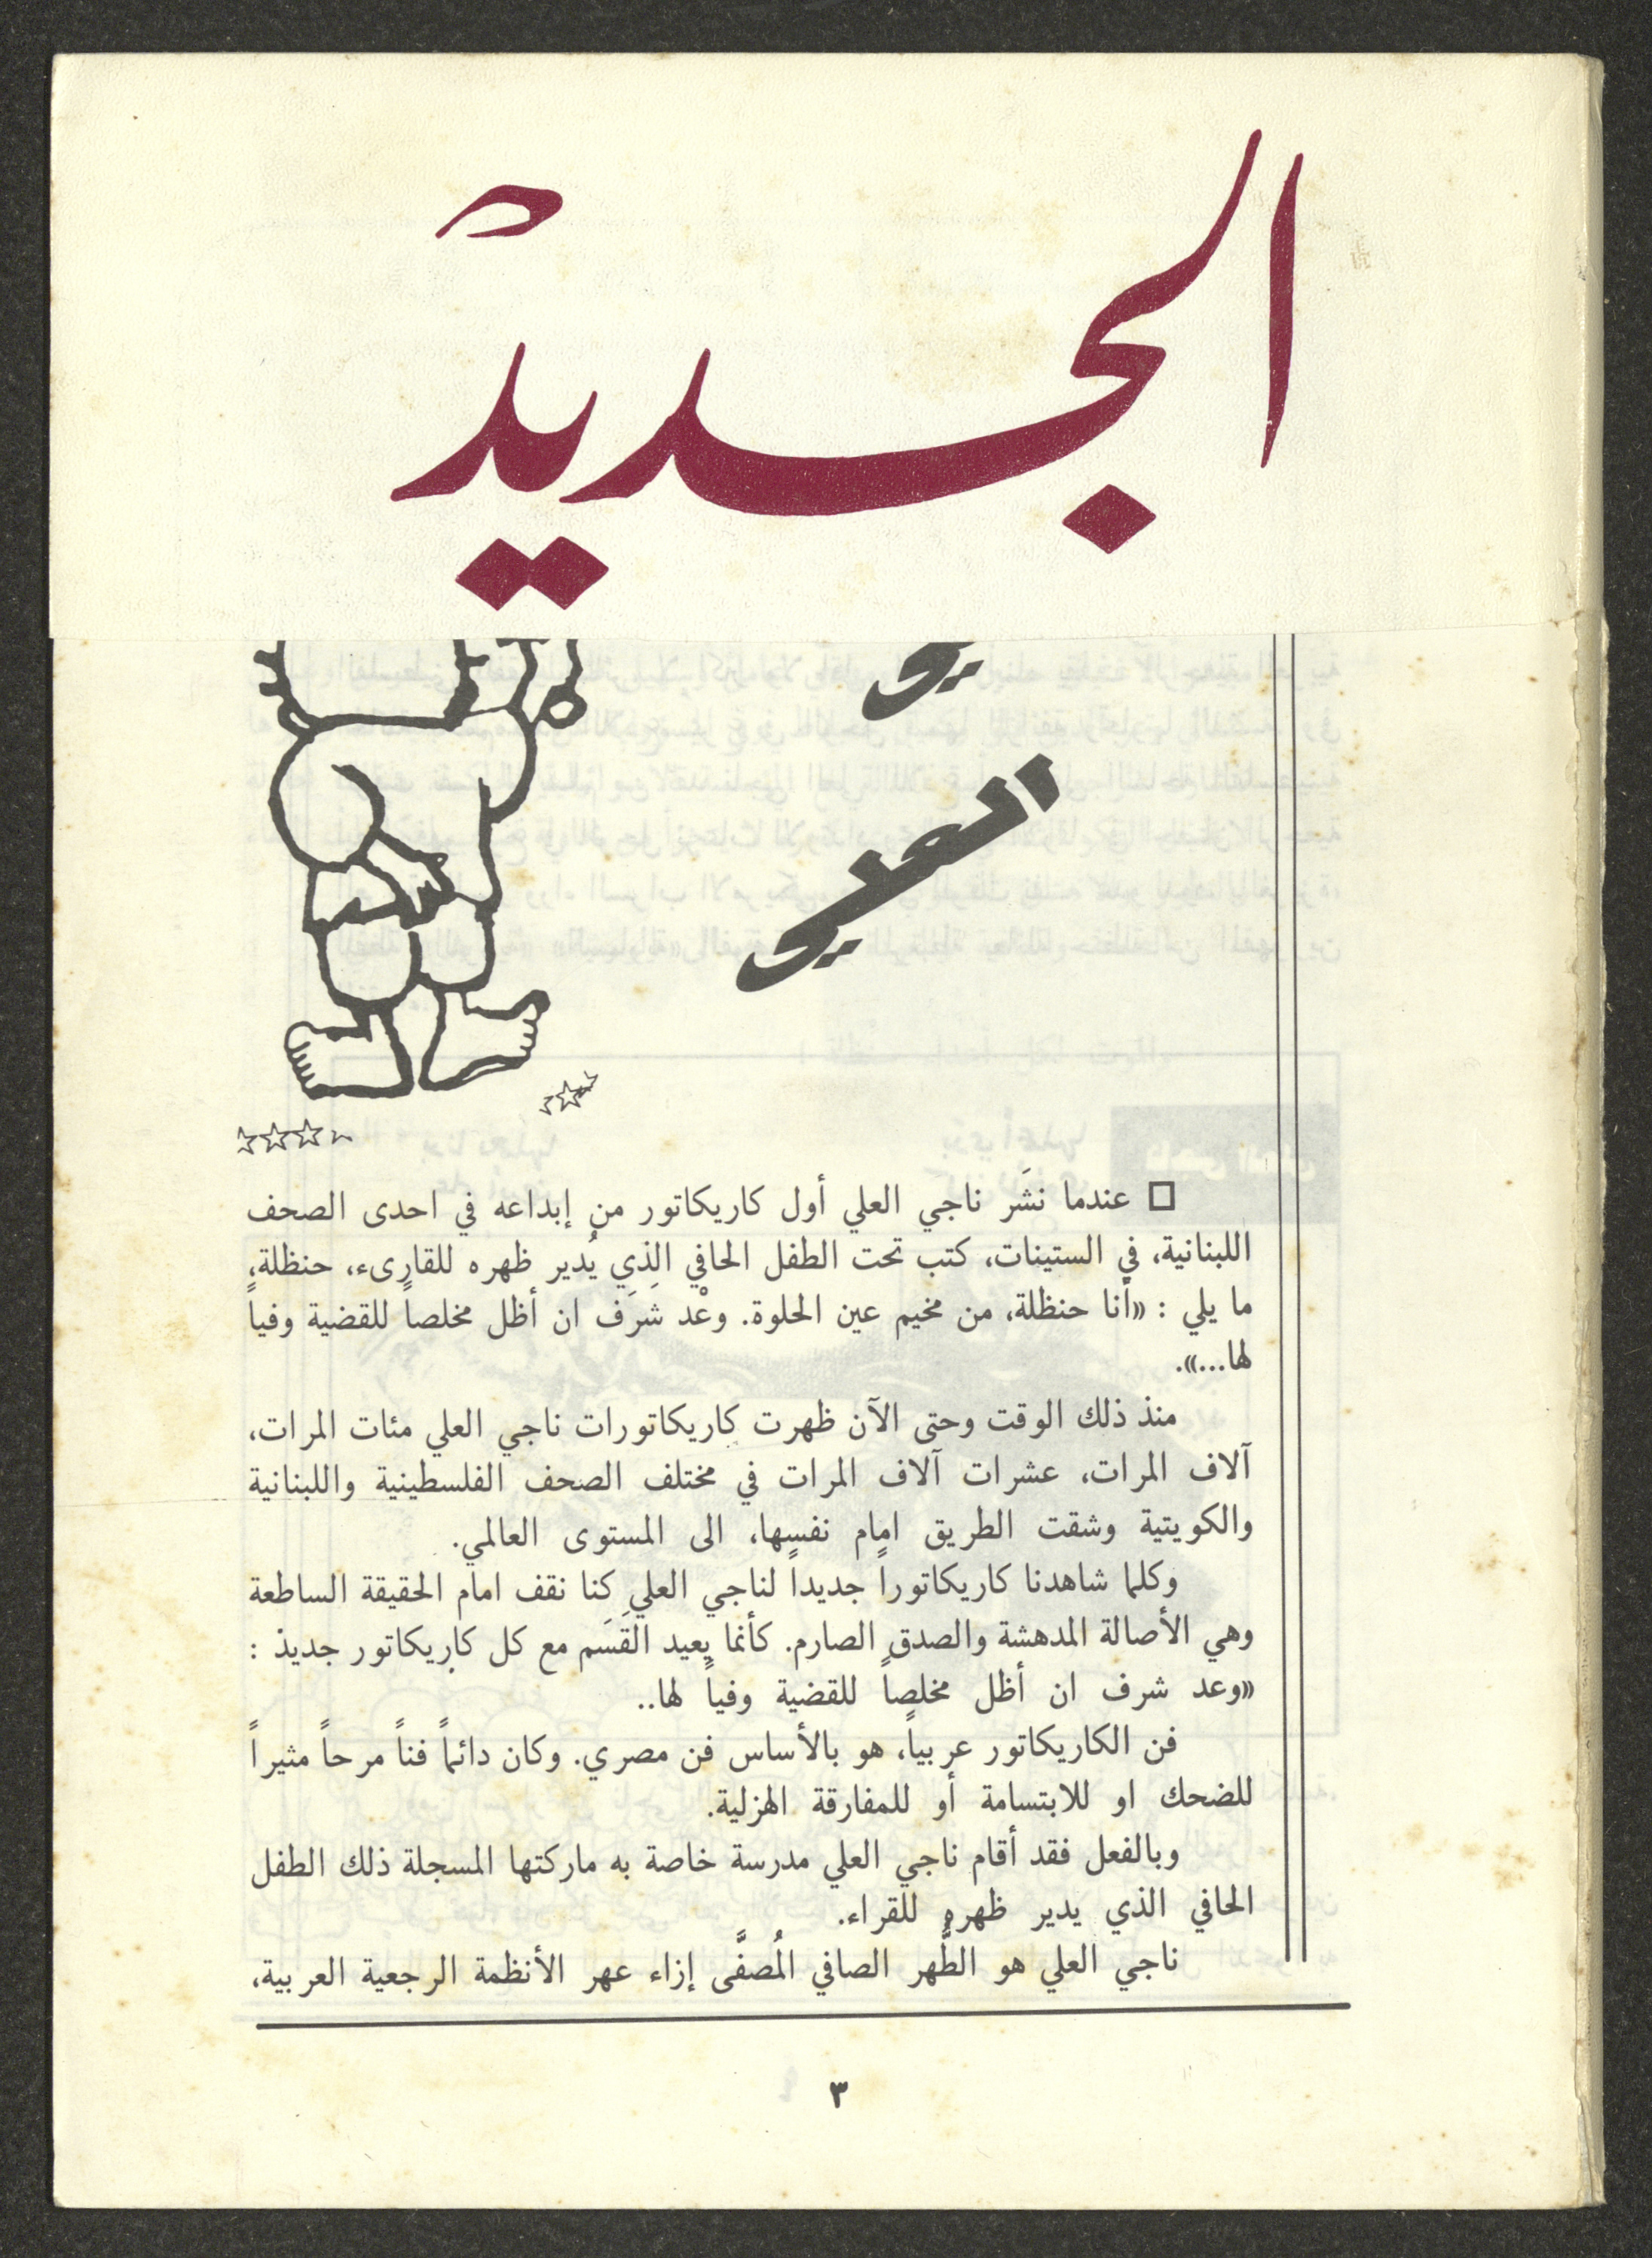 الجديد
العلي
□ عندما نشَر ناجي العلي أول كاريكاتور من إبداعه في احدى الصحف
اللبنانية، في الستينات، كتب تحت الطفل الحافي الذي يُدير ظهره للقارىء، حنظلة،
ما يلي : «أنا حنظلة، من مخيم عين الحلوة. وعْد شَرَف ان أظل مخلصاً للقضية وفياً
لها...».
منذ ذلك الوقت وحتى الآن ظهرت كاريكاتورات ناجي العلي مئات المرات،
آلاف المرات، عشرات آلاف المرات في مختلف الصحف الفلسطينية واللبنانية
والكويتية وشقت الطريق امام نفسها، الى المستوى العالمي.
وكلما شاهدنا كاريكاتوراً جديداً لناجي العلي كنا نقف امام الحقيقة الساطعة
وهي الأصالة المدهشة والصدق الصارم. كأنما يعيد القَسَم مع كل كاريكاتور جديذ :
«وعد شرف ان أظل مخلصاً للقضية وفياً لها..
فن الكاريكاتور عربياً، هو بالأساس فن مصري. وكان دائماً فناً مرحاً مثيراً
للضحك او للابتسامة أو للمفارقة الهزلية.
وبالفعل فقد أقام ناجي العلي مدرسة خاصة به ماركتها المسجلة ذلك الطفل
الحافي الذي يدير ظهره للقراء.
ناجي العلي هو الطُّهر الصافي المُصفَّى إزاء عهر الأنظمة الرجعية العربية،
٣